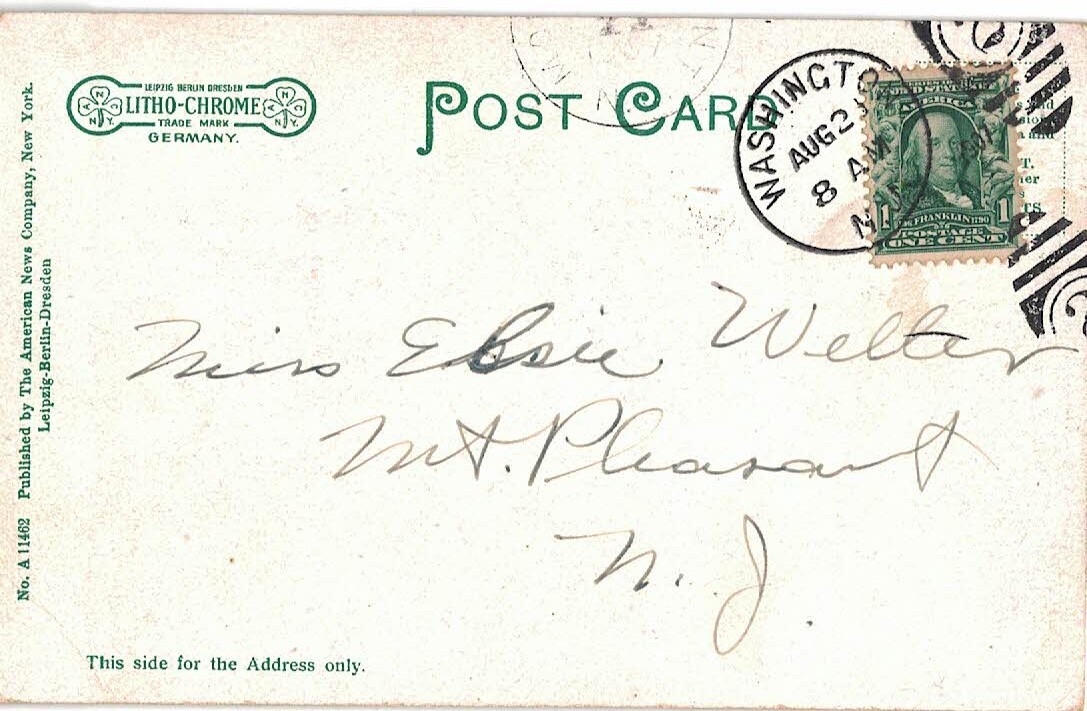 POST CARD
LEIPZIG BERLIN DRESDEN
LITHO-CHROME
TRADE MARK
GERMANY.
No. A 11462 Published by The American News Company, New York.
Leipzig-Berlin-Dresden
WASHINGTON
AUG 2
8 AM
N
AMERICA
FRANKLIN 1790
1 1
POSTAGE
ONE CENT
Miss Elsie Welter
Mt. Pleasant
N. J.
This side for the Address only.